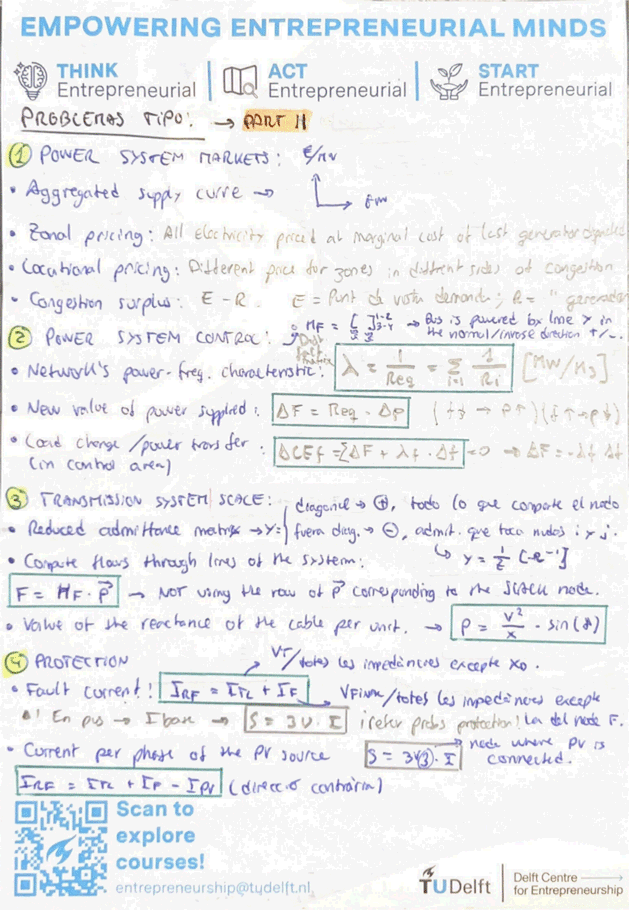 EMPOWERING ENTREPRENEURIAL MINDS
THINK Entrepreneurial
ACT Entrepreneurial
START Entrepreneurial
PROBLEMAS TIPO: → PART II
① POWER SYSTEM MARKETS: €/MW
• Aggregated supply curve →
• Zonal pricing: All electricity priced at marginal cost of last generator
• Locational pricing: Different price for zones in different sides of congestion
• Congestion surplus: E - R. E = Punt de vista demanda; R = " generador
② POWER SYSTEM CONTROL:
MF = [ ] 1-2 3-4 → Bus is powered by line > in
the normal/inverse direction +/-.
• Network's power-freq. characteristic: λ = 1/Req = Σ i=1 1/Ri [MW/Hz]
• New value of power supplied: ΔF = Req · Δp
• Load change/power transfer: ΔCEf = ΣΔF + λf · Δf = 0 → ΔF = -λf Δf
(in control area)
③ TRANSMISSION SYSTEM SCALE: diagonal → ⊕, todo lo que comparte el nodo
• Reduced admittance matrix → Y = fuera diag. → ⊖, admit. que toca nudos i y j.
• Compute flows through lines of the system: ↳ y = 1/z [Ω⁻¹]
F = HF · P⃗ → NOT using the row of P⃗ corresponding to the SLACK node.
• Value of the reactance of the cable per unit. → P = V²/x · sin(δ)
④ PROTECTION
VT/totes les impedàncies excepte X0.
• Fault current! IRF = ITL + IF VFinal/totes les impedàncies excepte
! En pus → I base → S = 3V · I La del node F.
• Current per phase of the PV source S = 3V(3) · I node where PV is
connected.
IRF = ITL + IF - IPV (direcció contrària)
Scan to
explore
courses!
entrepreneurship@tudelft.nl
TUDelft
Delft Centre
for Entrepreneurship